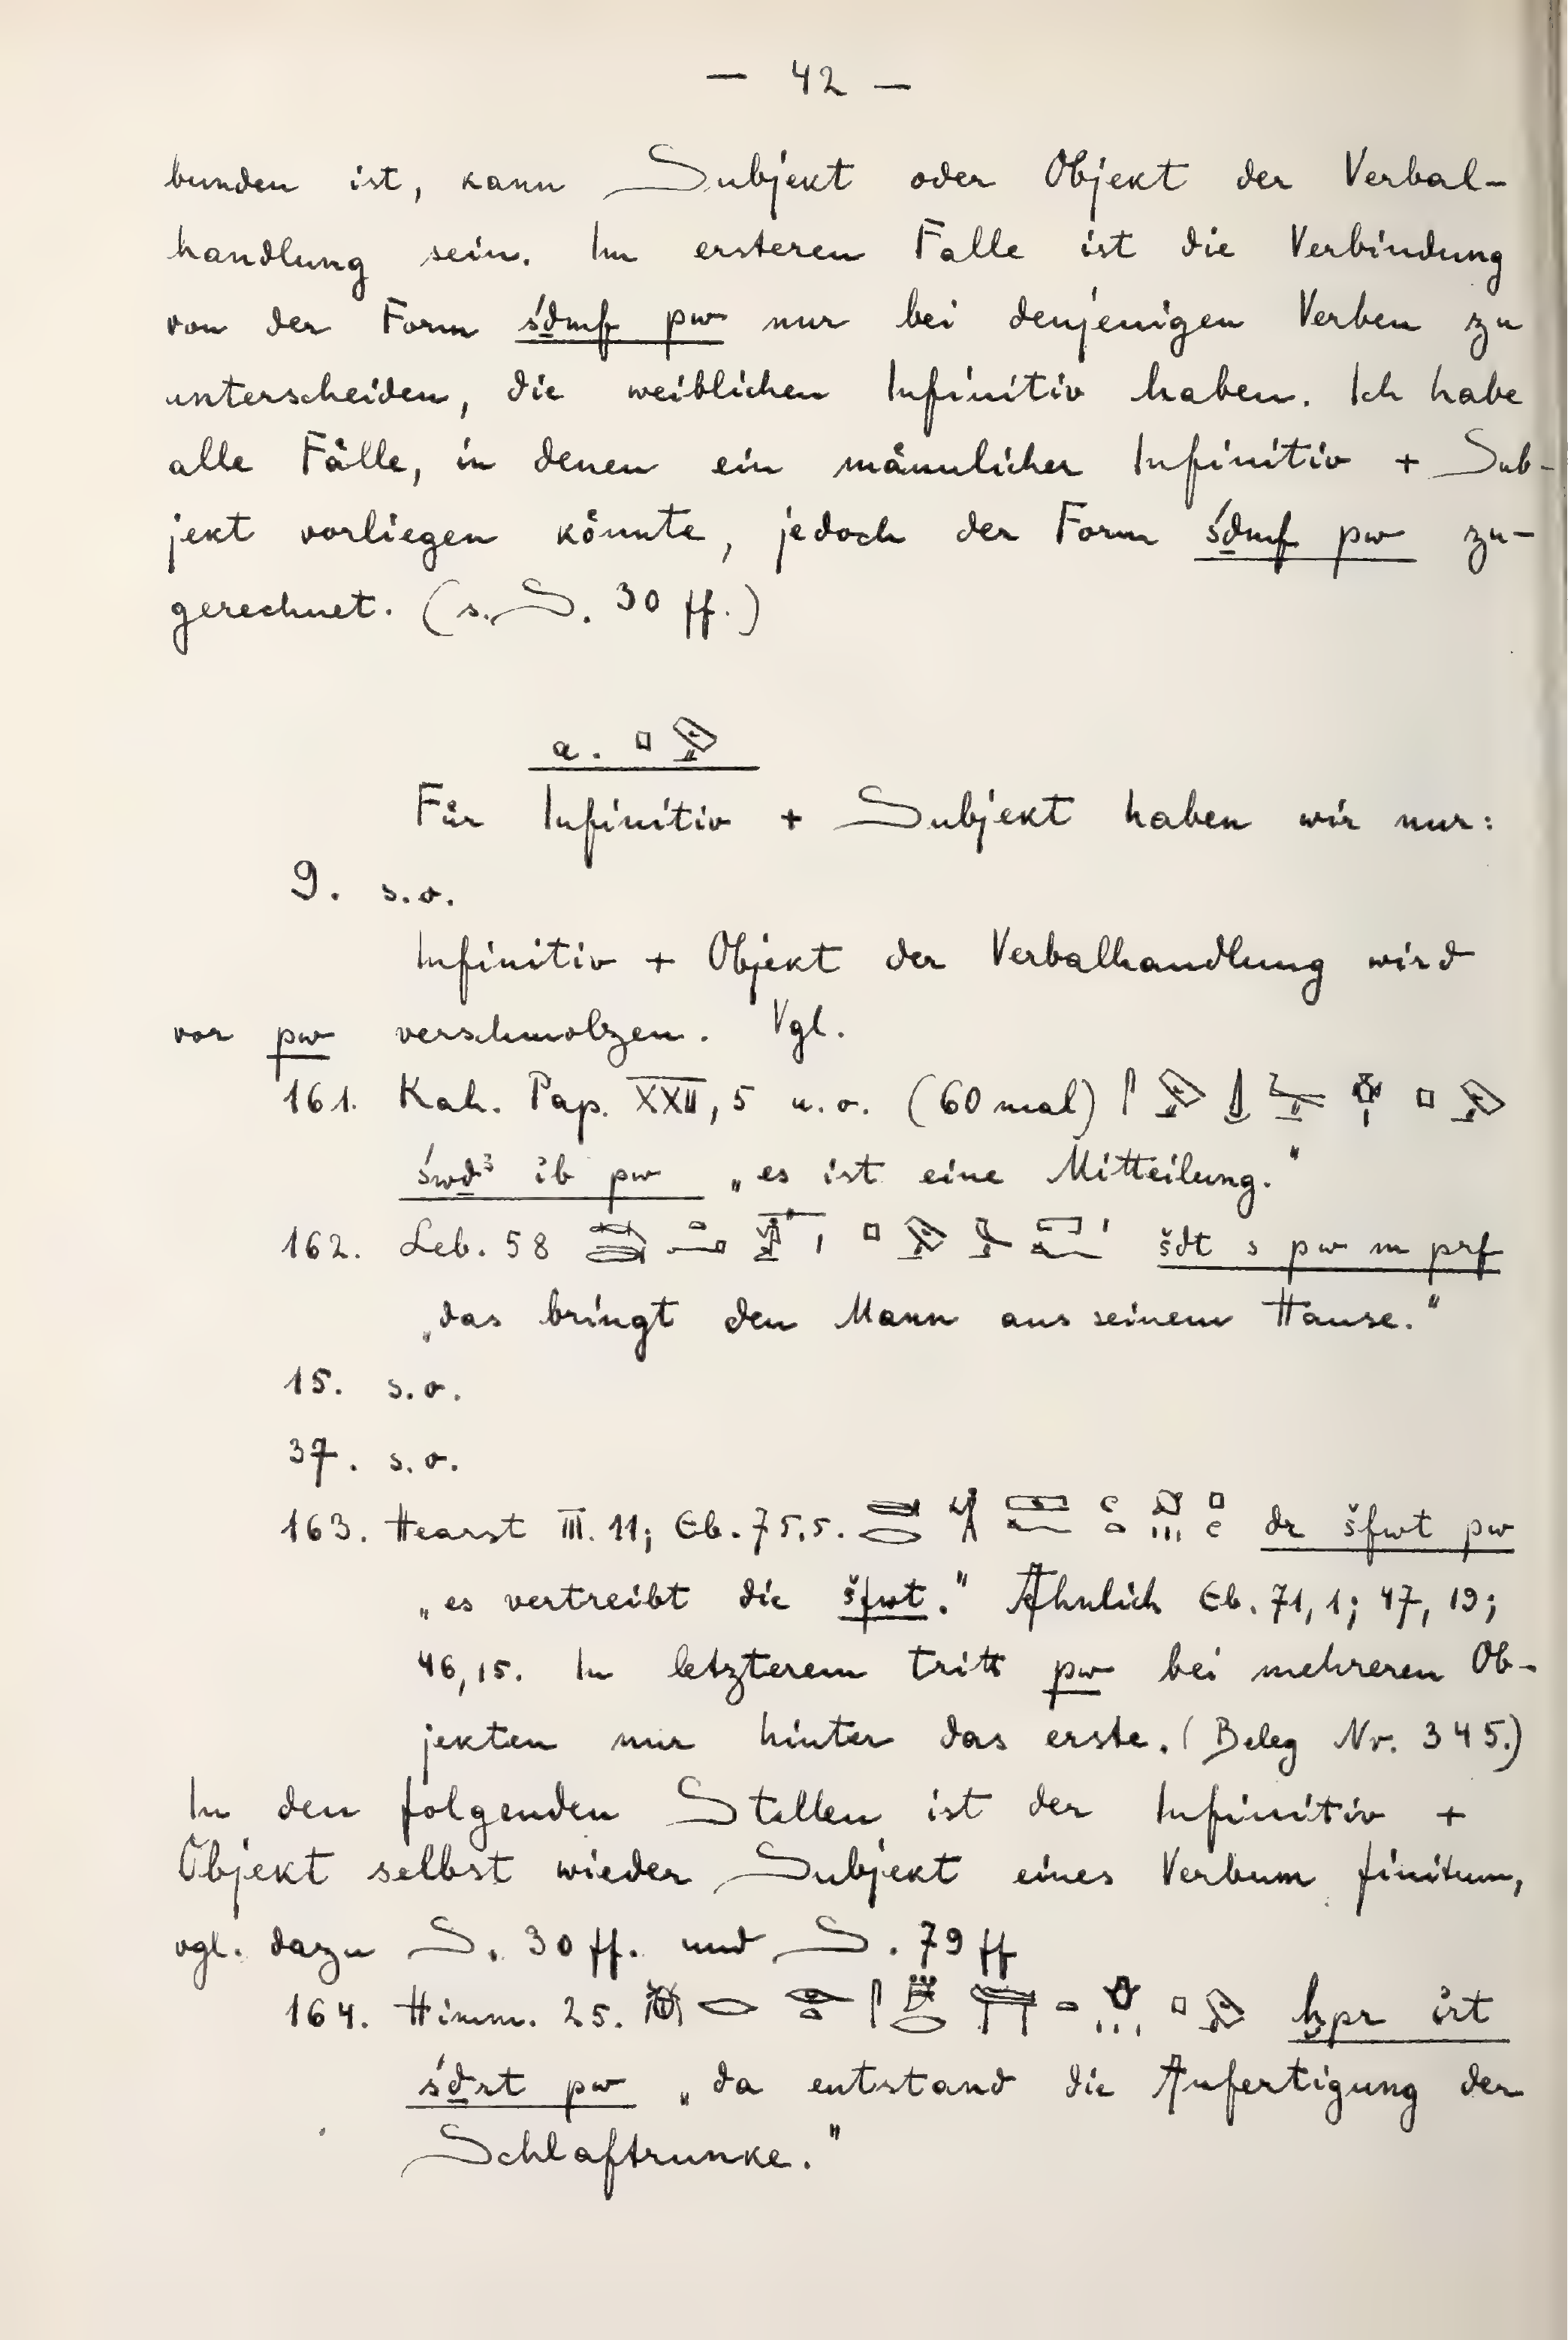 — 42 —
bunden ist, kann Subjekt oder Objekt der Verbal-
handlung sein. Im ersteren Falle ist die Verbindung
von der Form śḏmf pw nur bei denjenigen Verben zu
unterscheiden, die weiblichen Infinitiv haben. Ich habe
alle Fälle, in denen ein männlicher Infinitiv + Sub-
jekt vorliegen könnte, jedoch der Form śḏmf pw zu-
gerechnet. (s. S. 30 ff.)
a.
Für Infinitiv + Subjekt haben wir nur:
9. s.o.
Infinitiv + Objekt der Verbalhandlung wird
vor pw verschmolzen. Vgl.
161. Kah. Pap. XXII, 5 u.o. (60 mal)
św𝑑̱ꜣ ỉb pw „es ist eine Mitteilung."
162. Leb. 58 šdt s pw m prf
„das bringt den Mann aus seinem Hause."
15. s.o.
37. s.o.
163. Hearst III. 11; Eb. 75,5. dr šfwt pw
„es vertreibt die šfwt." Ähnlich Eb. 71,1; 47, 19;
46,15. In letzterem tritt pw bei mehreren Ob-
jekten nur hinter das erste. (Beleg Nr. 345.)
In den folgenden Stellen ist der Infinitiv +
Objekt selbst wieder Subjekt eines Verbum finitum,
vgl. dazu S. 30 ff. und S. 79 ff
164. Himm. 25. ḫpr ỉrt
śḏrt pw „da entstand die Anfertigung der
Schlaftrunke."